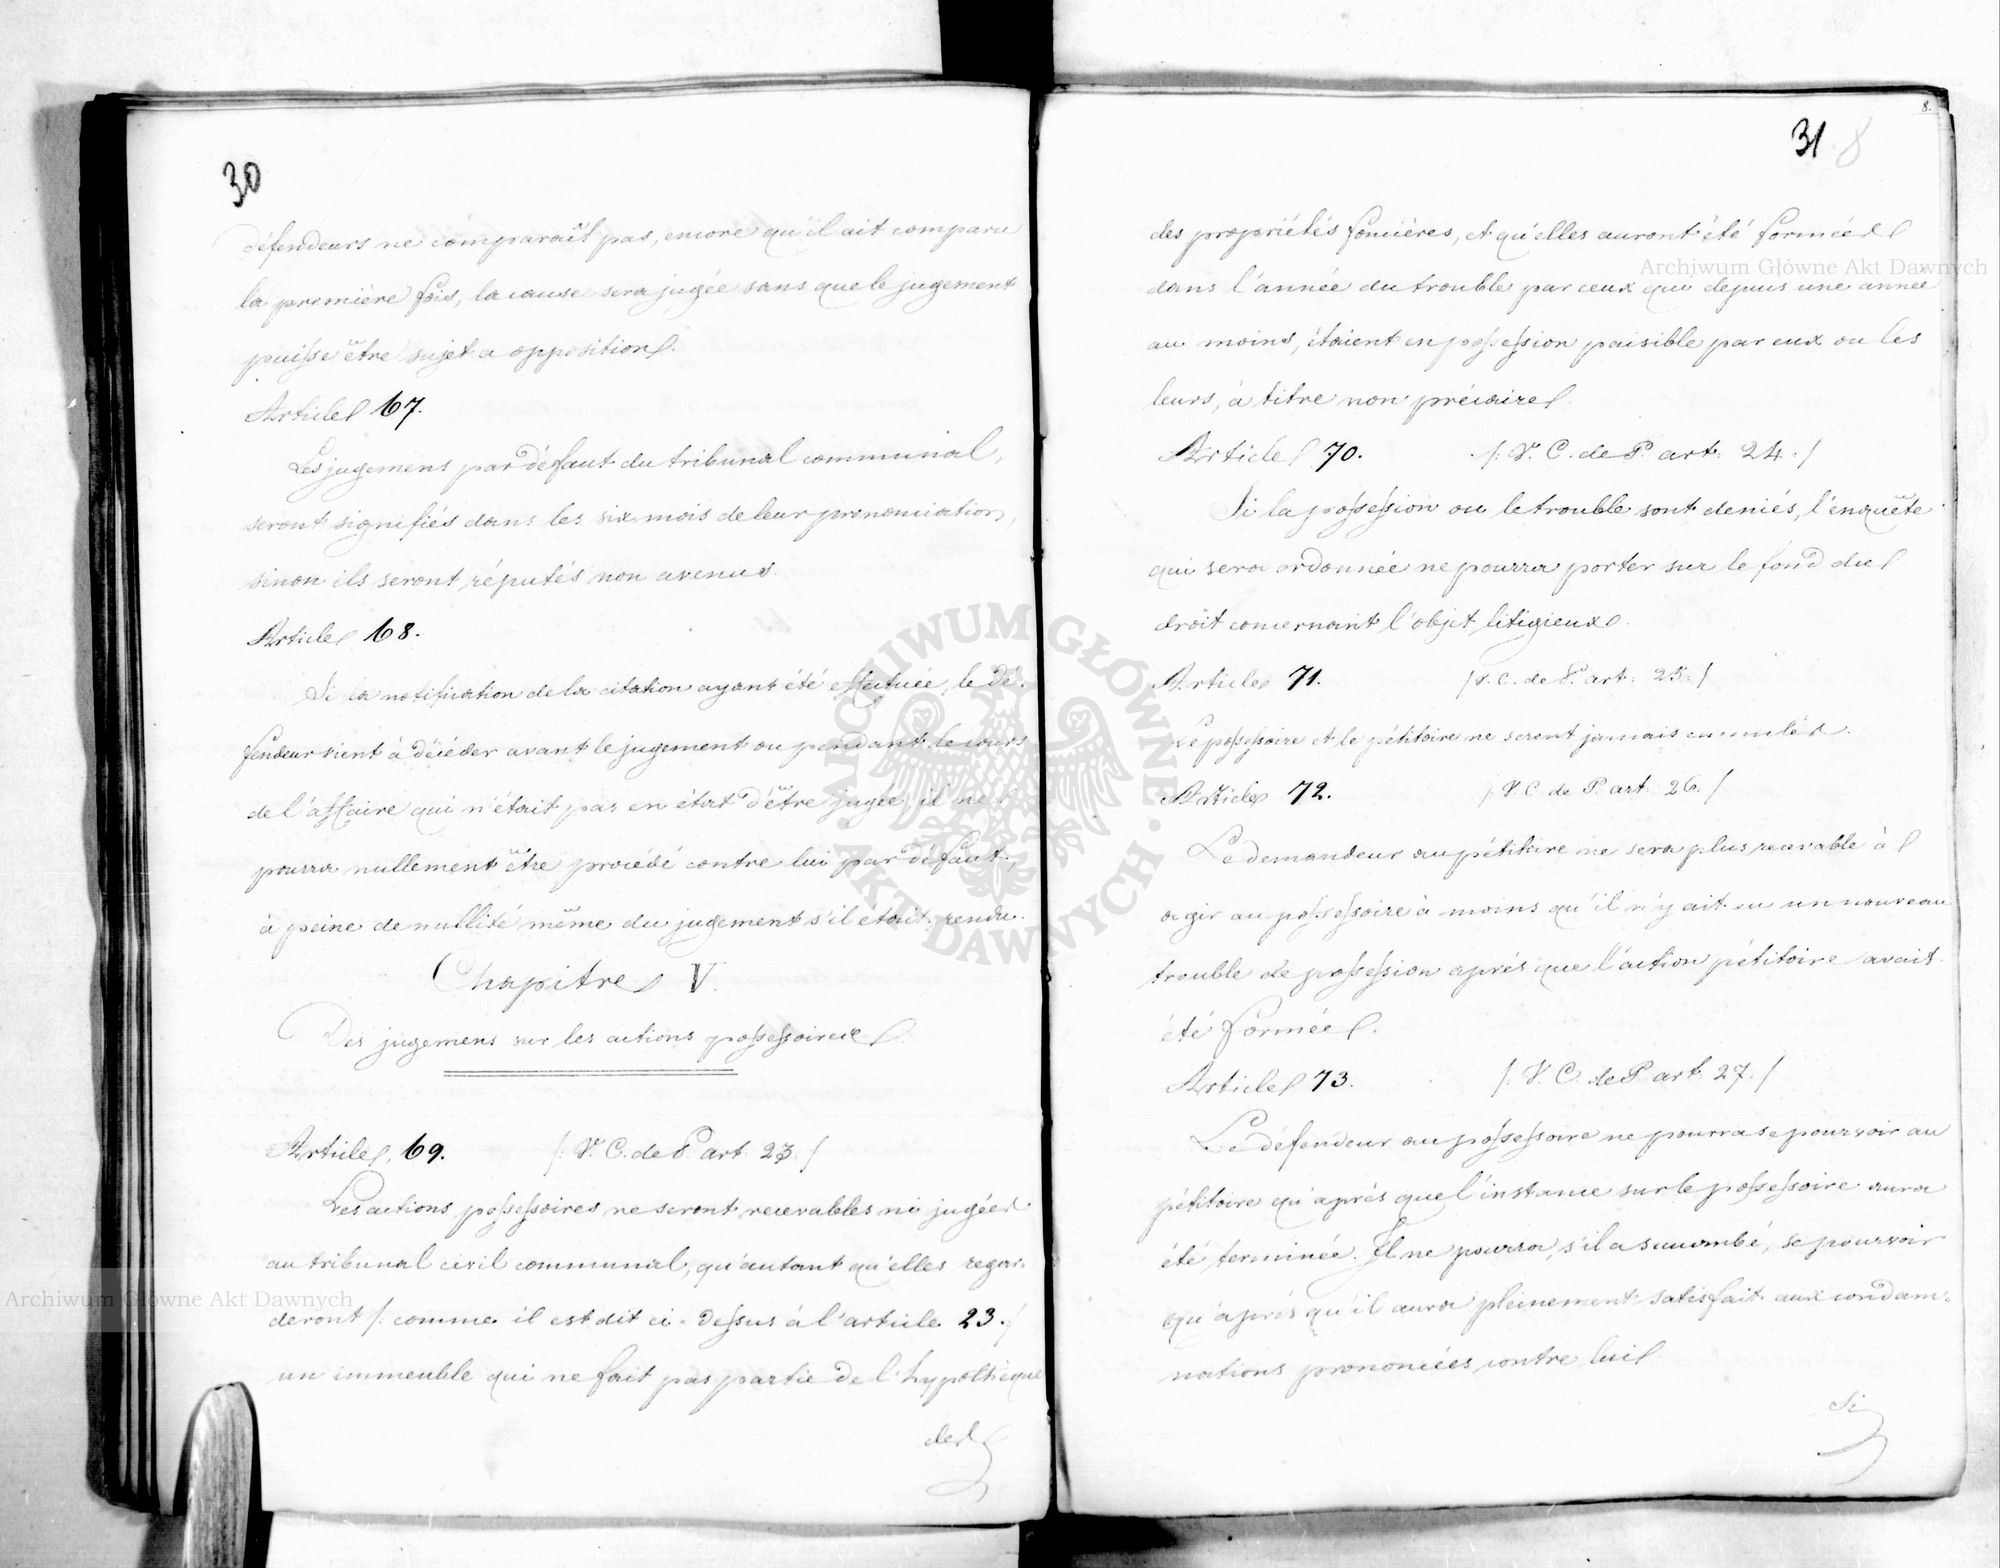 30
défendeurs ne comparaît pas, encore qu'il ait comparu
la première fois, la cause sera jugée sans que le jugement
puisse être sujet a opposition.
Article 67.
Les jugemens par défaut du tribunal communal,
seront signifiés dans les six mois de leur prononciation,
sinon ils seront réputés non avenus.
Article 68.
Si la notification de la citation ayant été effectuée, le dé-
fendeur vient à décéder avant le jugement ou pendant le cours
de l'affaire qui n'était pas en état d'être jugée, il ne
pourra nullement être procédé contre lui par défaut,
à peine de nullité même du jugement s'il était rendu.
Chapitre V.
Des jugemens sur les actions possessoires.
Article 69. /: V. C. de P. art. 23 :/
Les actions possessoires ne seront recevables ni jugées
au tribunal civil communal, qu'autant qu'elles regar-
deront /: comme il est dit ci-dessus à l'article 23. :/
un immeuble qui ne fait pas partie de l'hypothèque
des
8.
31 8
des propriétés foncières, et qu'elles auront été formées
dans l'année du trouble par ceux qui depuis une année
au moins, étaient en possession paisible par eux ou les
leurs, à titre non précaire.
Article 70. /: V. C. de P. art. 24. :/
Si la possession ou le trouble sont deniés, l'enquête
qui sera ordonnée ne pourra porter sur le fond du
droit concernant l'objet litigieux.
Article 71. /: V. C. de P. art. 25. :/
Le possessoire et le pétitoire ne seront jamais cumulés.
Article 72. /: V. C. de P. art. 26. :/
Le demandeur au pétitoire ne sera plus recevable à
agir au possessoire à moins qu'il n'y ait eu un nouveau
trouble de possession après que l'action pétitoire avait
été formée.
Article 73. /: V. C. de P. art. 27. :/
Le défendeur au possessoire ne pourra se pourvoir au
pétitoire qu'après que l'instance sur le possessoire aura
été terminée. Il ne pourra, s'il a succombé, se pourvoir
qu'après qu'il aura pleinement satisfait aux condam-
nations prononcées contre lui.
Si
Archiwum Główne Akt Dawnych
Archiwum Główne Akt Dawnych
ARCHIWUM GŁÓWNE · AKT DAWNYCH ·